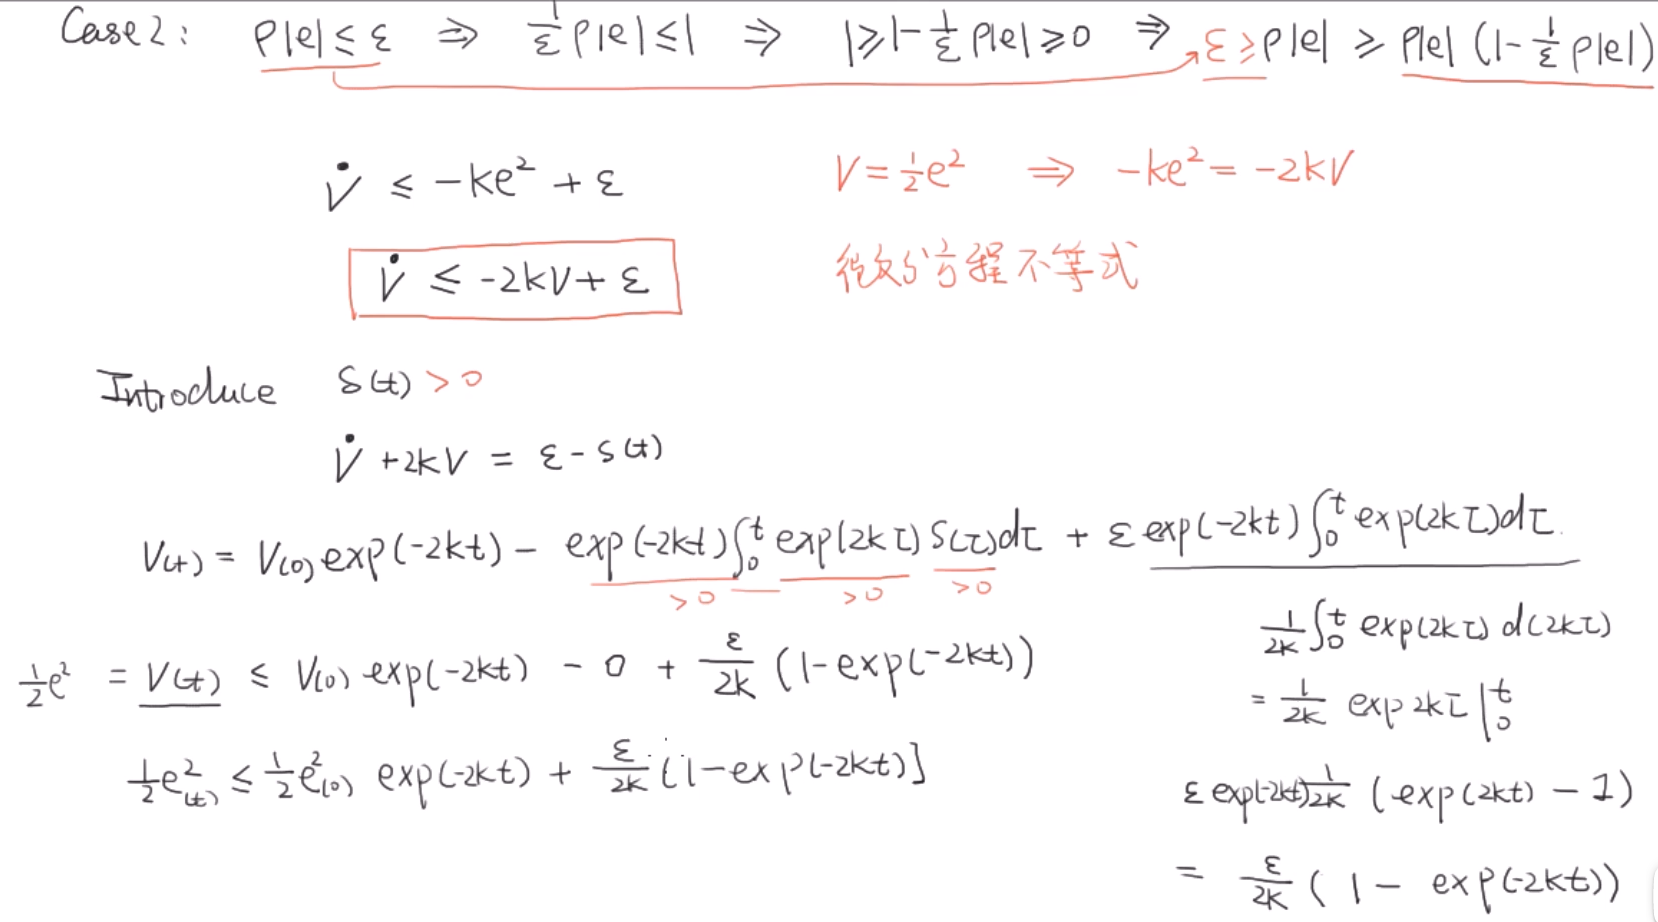 Case 2: ρ|e| ≤ ε ⇒ 1/ε ρ|e| ≤ 1 ⇒ 1 ≥ 1 - 1/ε ρ|e| ≥ 0 ⇒ ε ≥ ρ|e| ≥ ρ|e| (1 - 1/ε ρ|e|)
V̇ ≤ -ke² + ε
V = 1/2 e² ⇒ -ke² = -2kV
V̇ ≤ -2kV + ε
微分方程不等式
Introduce S(t) > 0
V̇ + 2kV = ε - S(t)
V(t) = V(0) exp(-2kt) - exp(-2kt) ∫₀ᵗ exp(2kτ) S(τ)dτ + ε exp(-2kt) ∫₀ᵗ exp(2kτ)dτ.
>0 >0 >0
1/2k ∫₀ᵗ exp(2kτ) d(2kτ)
1/2 e² = V(t) ≤ V(0) exp(-2kt) - 0 + ε/2k (1-exp(-2kt))
= 1/2k exp 2kτ |₀ᵗ
1/2 e²(t) ≤ 1/2 e²(0) exp(-2kt) + ε/2k [1-exp(-2kt)]
ε exp(-2kt) 1/2k (exp(2kt) - 1)
= ε/2k (1 - exp(-2kt))